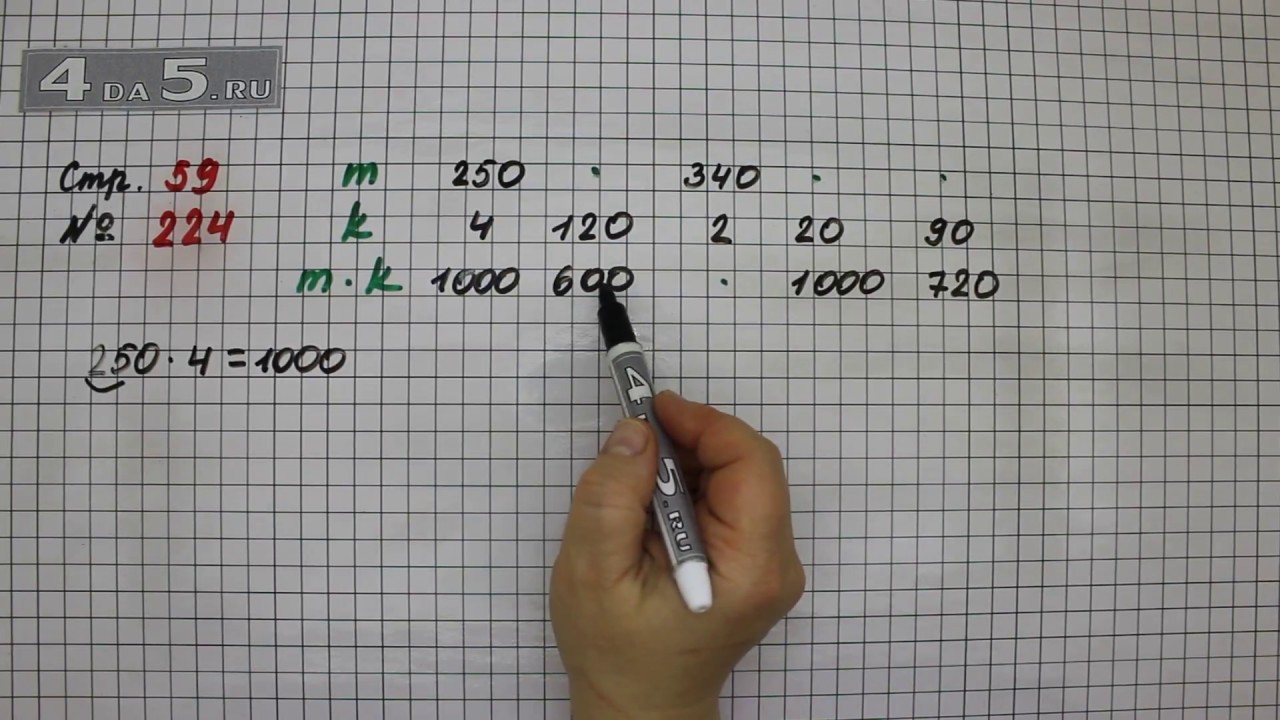 4 DA 5.RU
Стр. 59
№ 224
m 250 · 340 · ·
k 4 120 2 20 90
m · k 1000 600 · 1000 720
250 · 4 = 1000
5.RU